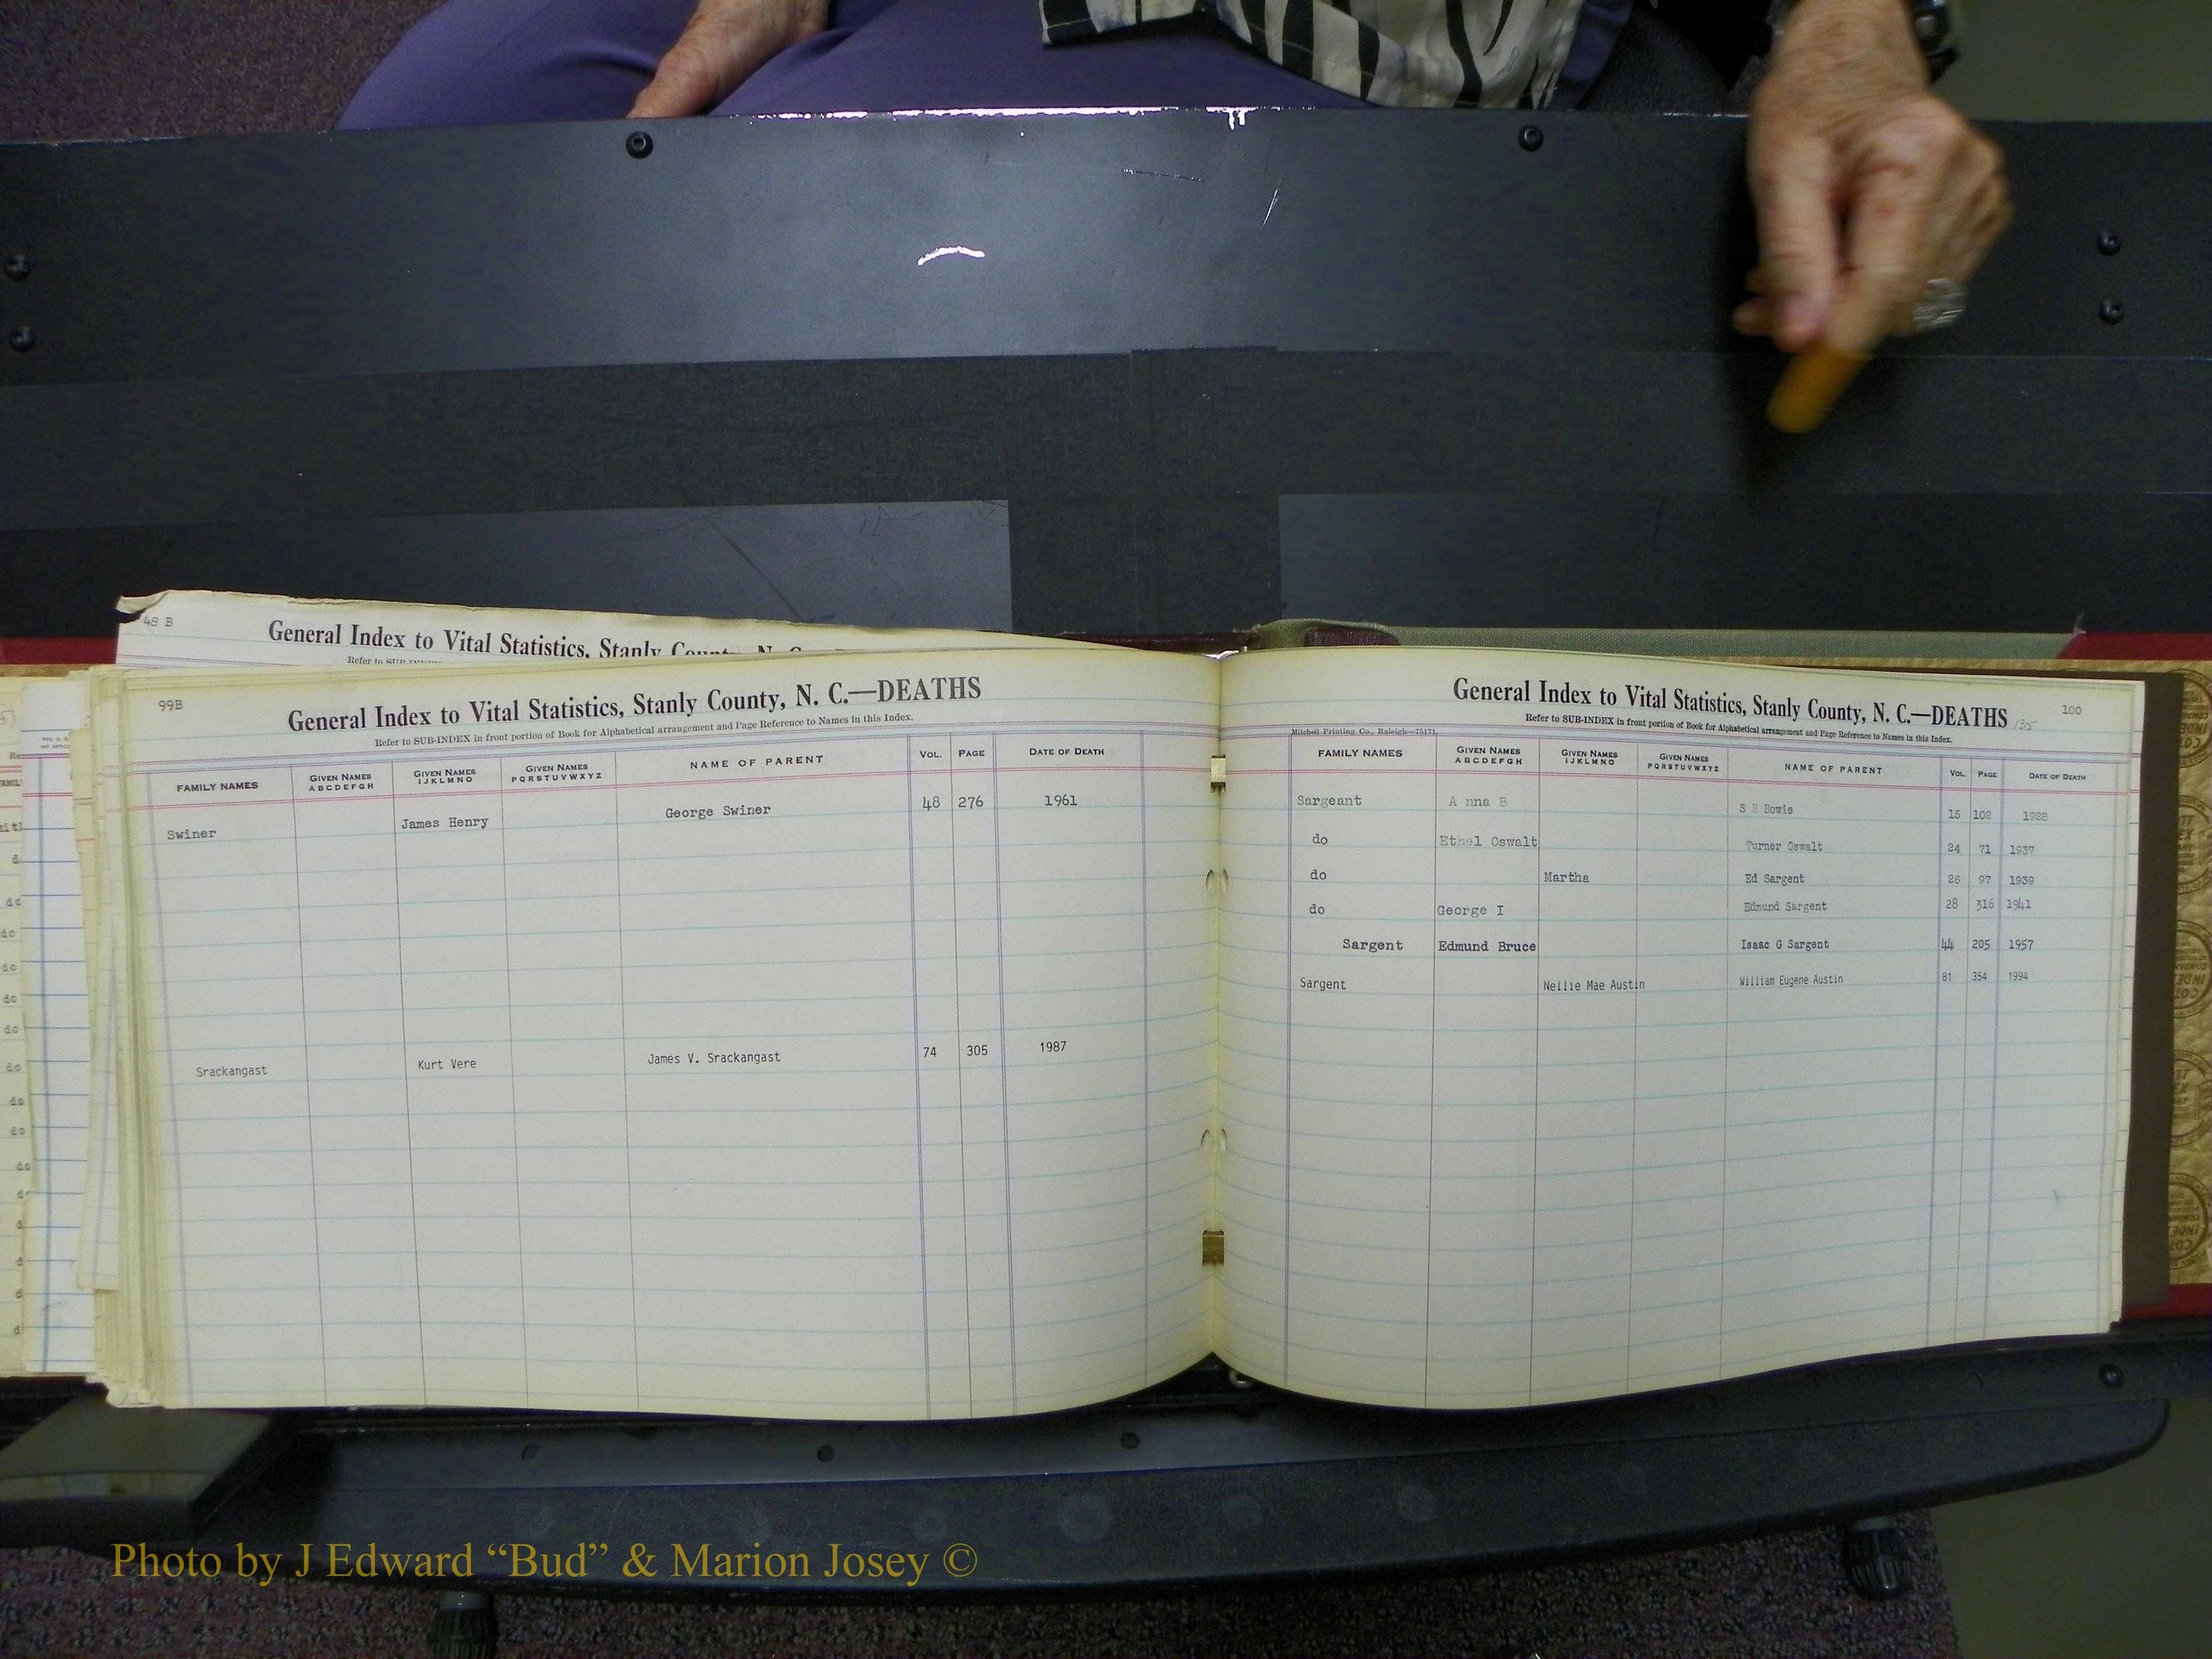 48 B
General Index to Vital Statistics, Stanly County, N. C.
Refer to SUB
99B
General Index to Vital Statistics, Stanly County, N. C.—DEATHS
Refer to SUB-INDEX in front portion of Book for Alphabetical arrangement and Page Reference to Names in this Index.
FAMILY NAMES GIVEN NAMES ABCDEFGH GIVEN NAMES IJKLMNO GIVEN NAMES PQRSTUVWXYZ NAME OF PARENT VOL. PAGE DATE OF DEATH
Swiner James Henry George Swiner 48 276 1961
Srackangast Kurt Vere James V. Srackangast 74 305 1987
100
General Index to Vital Statistics, Stanly County, N. C.—DEATHS 135
Refer to SUB-INDEX in front portion of Book for Alphabetical arrangement and Page Reference to Names in this Index.
Mitchell Printing Co., Raleigh—75171
FAMILY NAMES GIVEN NAMES ABCDEFGH GIVEN NAMES IJKLMNO GIVEN NAMES PQRSTUVWXYZ NAME OF PARENT VOL. PAGE DATE OF DEATH
Sargeant A nna B S B Bowie 15 102 1928
do Ethel Oswalt Turner Oswalt 24 71 1937
do Martha Ed Sargent 26 97 1939
do George I Edmund Sargent 28 316 1941
Sargent Edmund Bruce Isaac G Sargent 44 205 1957
Sargent Nellie Mae Austin William Eugene Austin 81 354 1994
Photo by J Edward “Bud” & Marion Josey ©